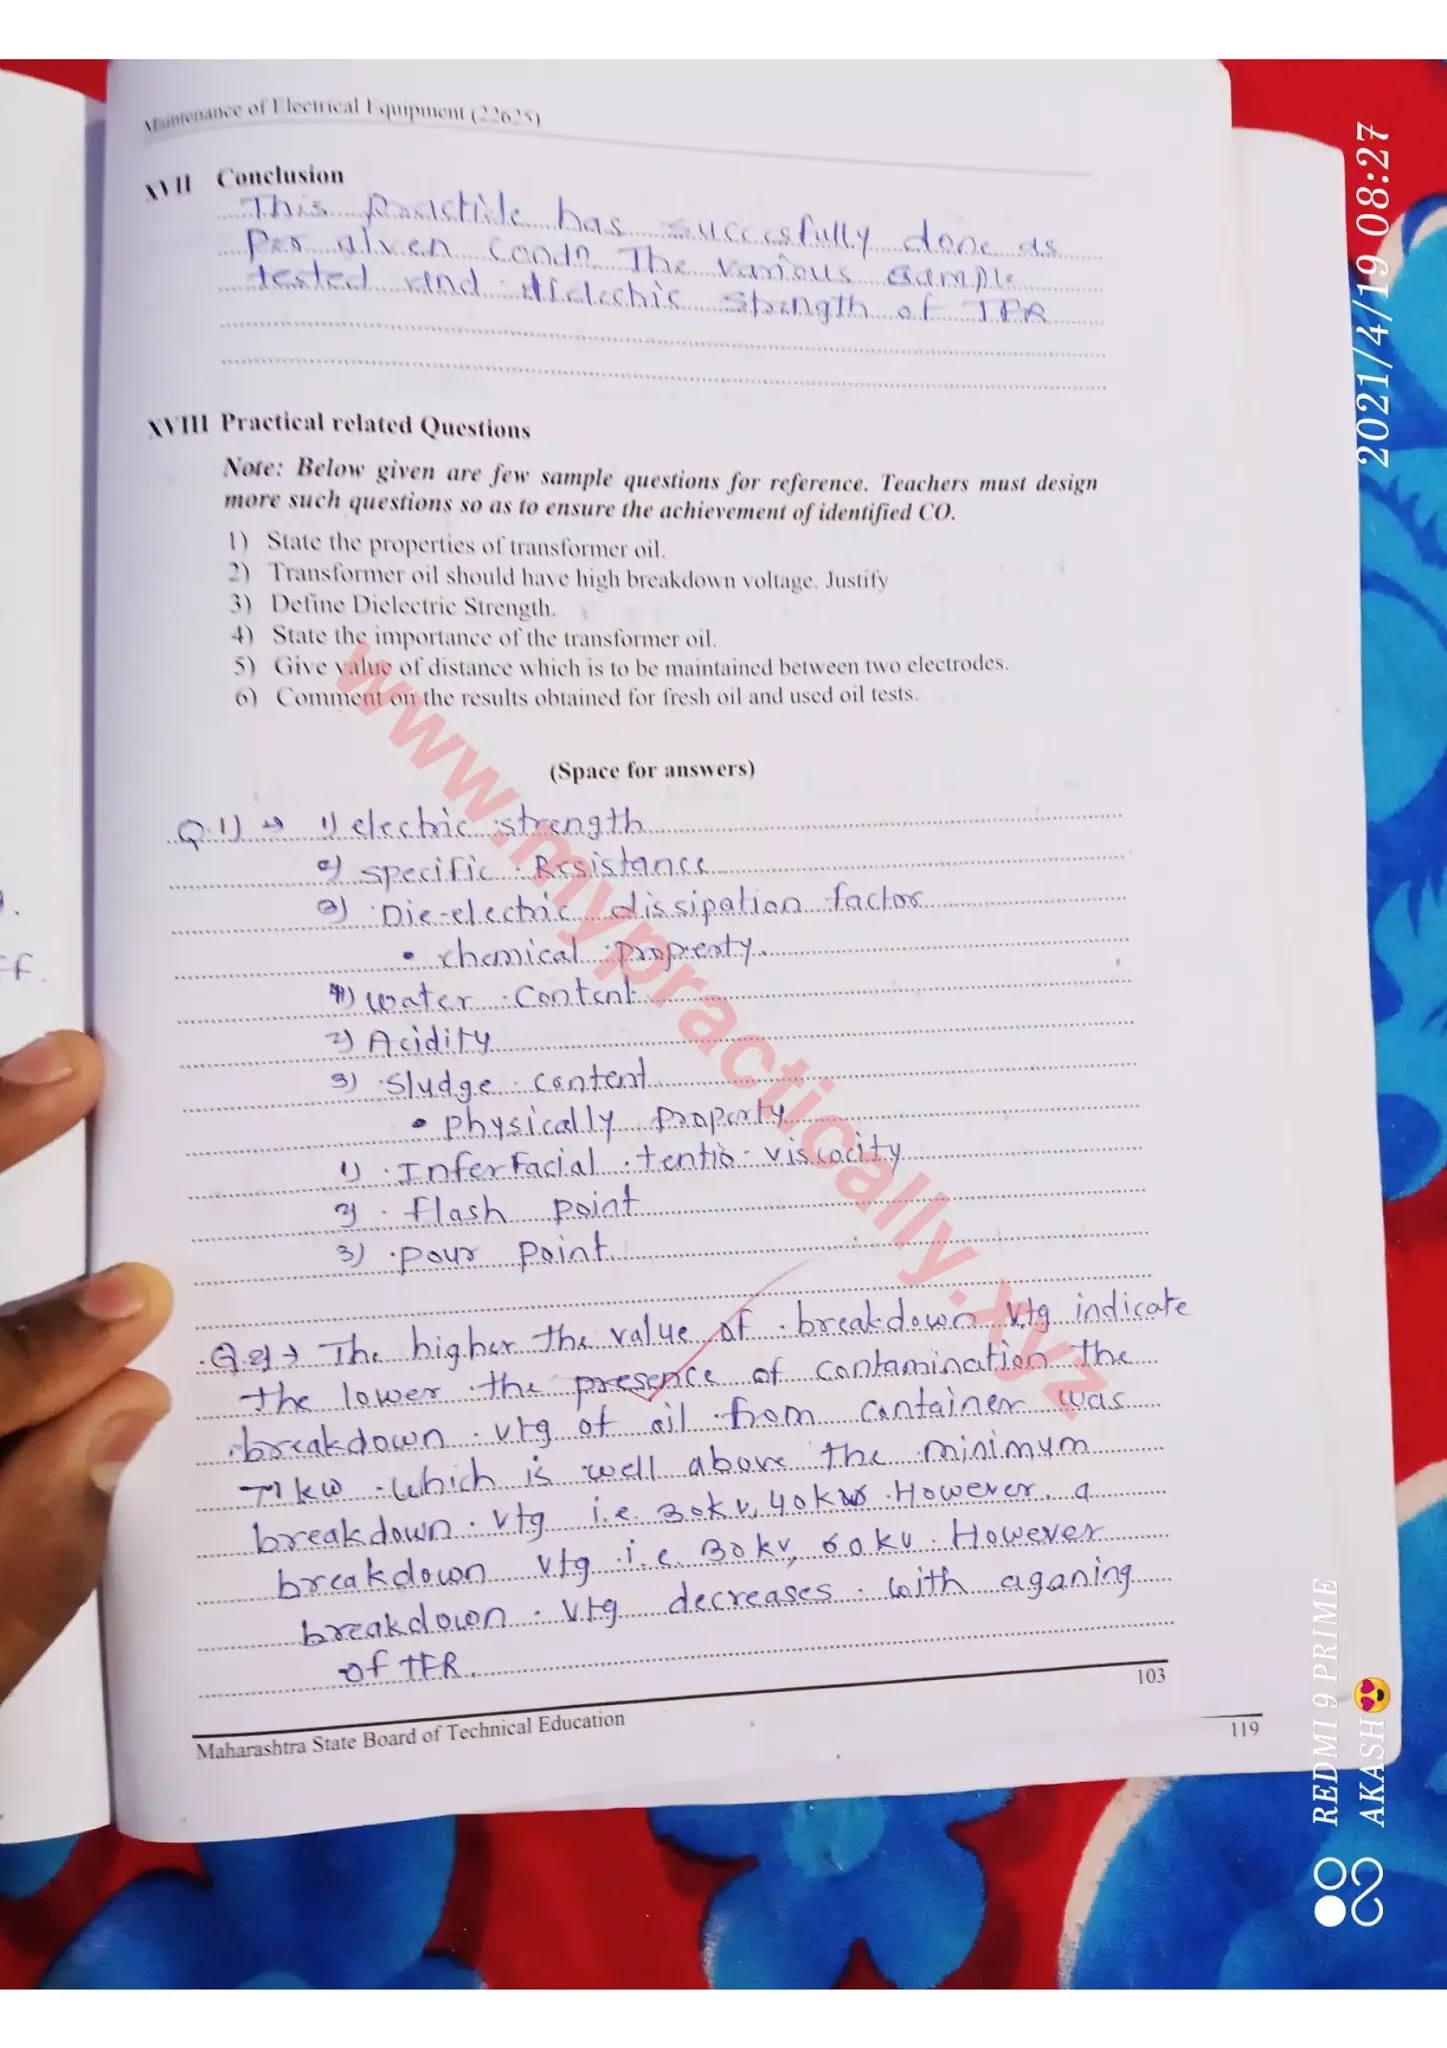 Maintenance of Electrical Equipment (22625)
XVII Conclusion
This Practicle has succesfully done as
Per given Condn The various sample
tested and dielectric strength of TFR
XVIII Practical related Questions
Note: Below given are few sample questions for reference. Teachers must design
more such questions so as to ensure the achievement of identified CO.
1) State the properties of transformer oil.
2) Transformer oil should have high breakdown voltage. Justify
3) Define Dielectric Strength.
4) State the importance of the transformer oil.
5) Give value of distance which is to be maintained between two electrodes.
6) Comment on the results obtained for fresh oil and used oil tests.
(Space for answers)
Q.1) → 1) electric strength
2) specific Resistance
3) Die-electric dissipation factor
• chemical property.
1) water content
2) Acidity
3) sludge content
• physically property
1) Interfacial tentio viscocity
2) flash point
3) pour point
Q.2) → The higher the value of breakdown vtg indicate
the lower the presence of contamination the
breakdown vtg of oil from container was
which is well above the minimum
breakdown vtg i.e. 30kv, 40kv However a
breakdown vtg i.e 30kv, 60kv. However
breakdown vtg decreases with aganing
of TFR.
103
Maharashtra State Board of Technical Education
119
www.mypractically.xyz
2021/4/19 08:27
REDMI 9 PRIME
AKASH😍